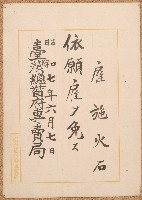 雇 施火石
依願雇ヲ免ス
昭和七年六月七日
臺灣總督府專賣局